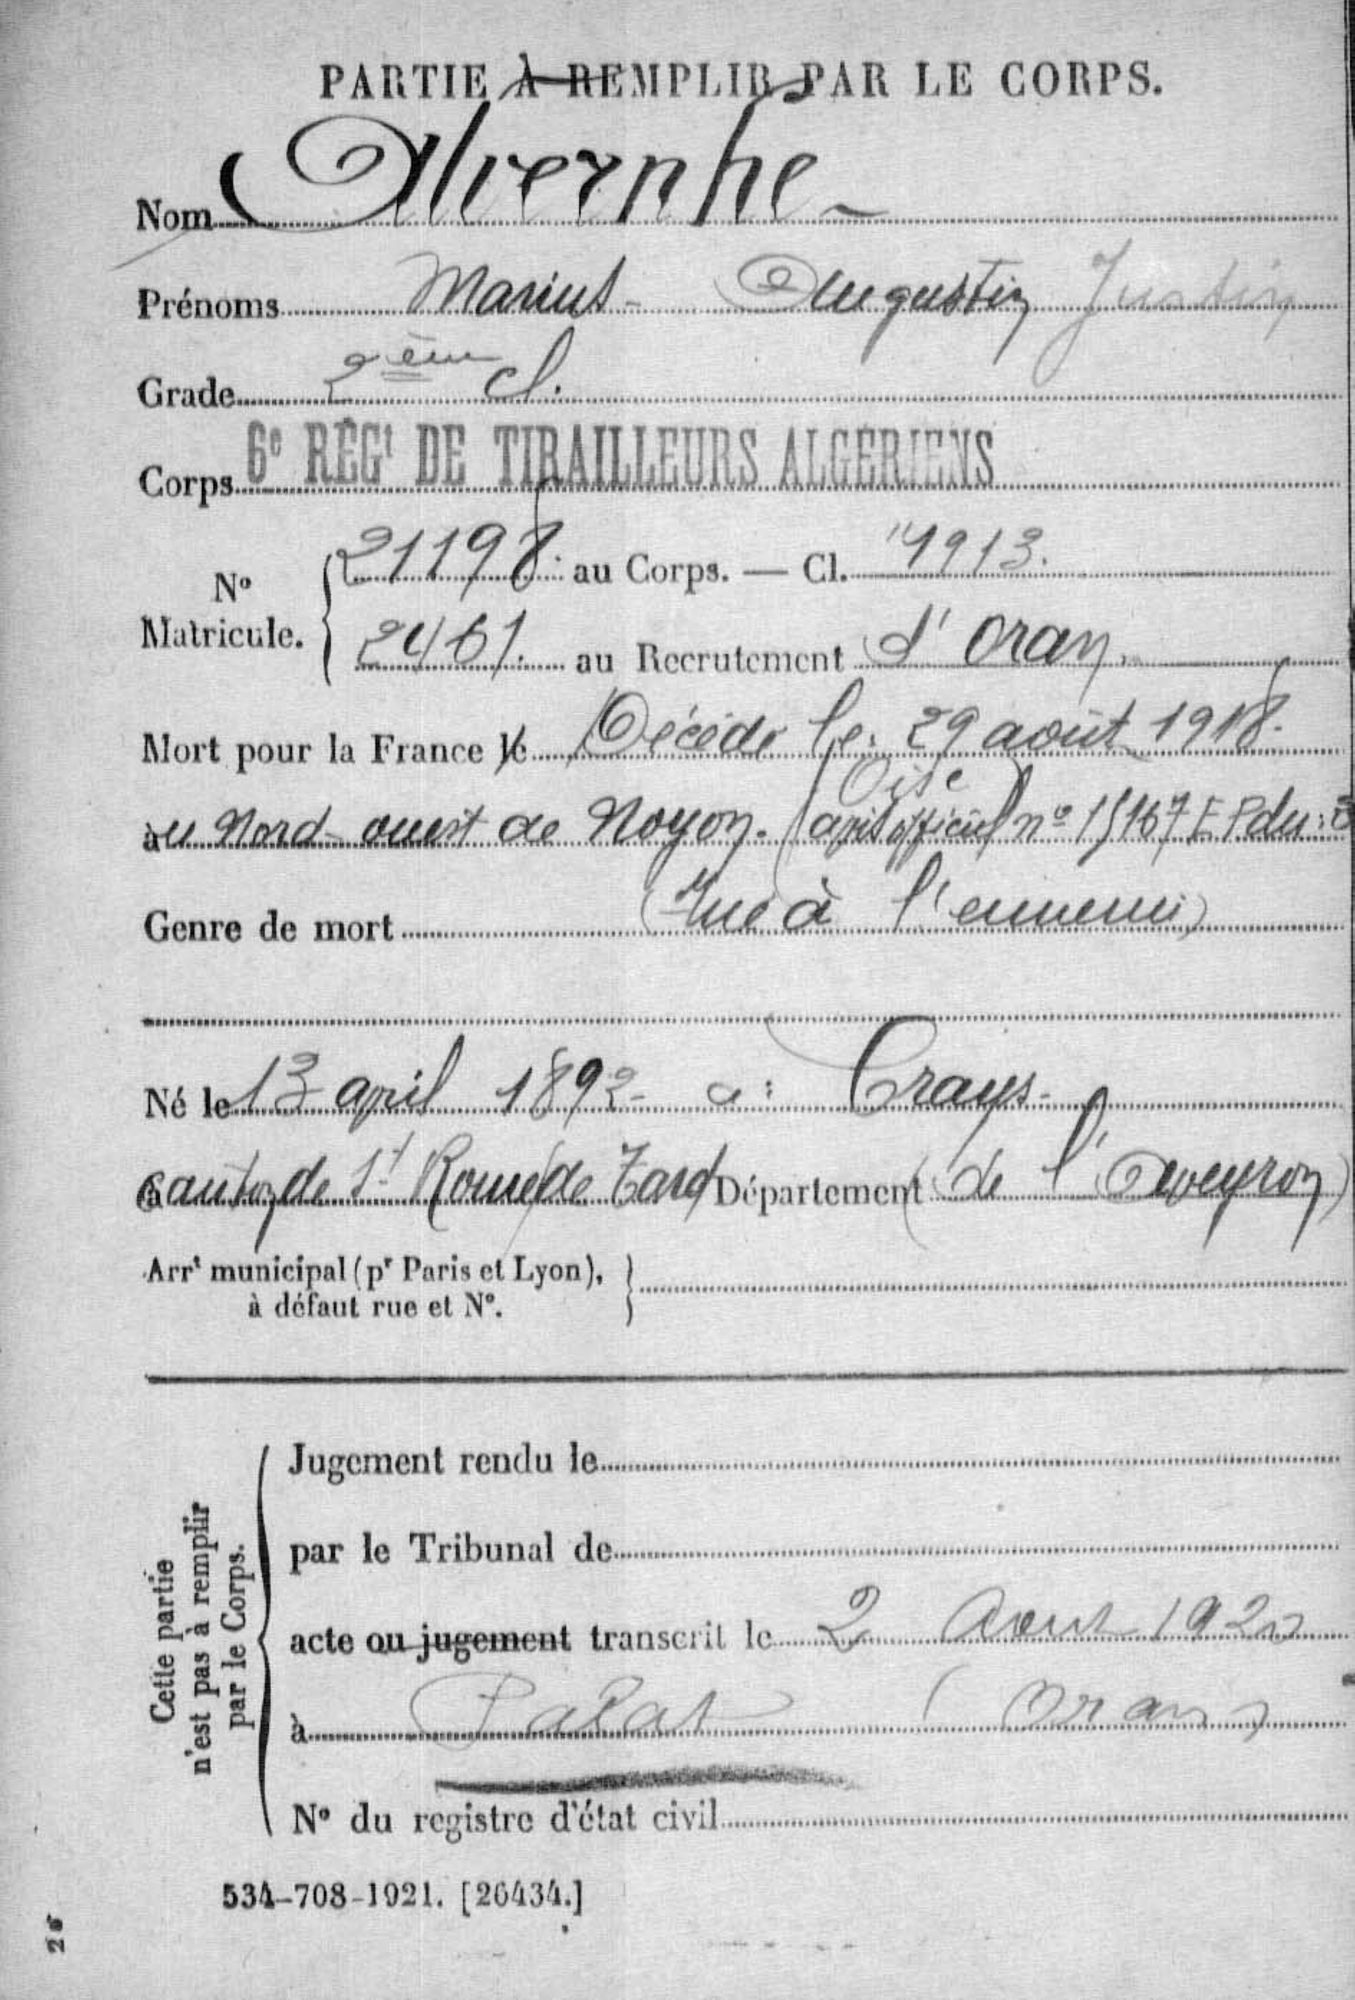 PARTIE À REMPLIR PAR LE CORPS.
Nom Alvernhe
Prénoms Marius Augustin Justin
Grade 2ème cl.
Corps 6e RÉGt DE TIRAILLEURS ALGÉRIENS
No Matricule. 21198 au Corps. — Cl. 1913.
2461. au Recrutement d'Oran.
Mort pour la France le Décédé le: 29 août 1918.
Oise
au Nord-ouest de Noyon. (avis officiel no 15167 E P. du: 3
Genre de mort (tué à l'ennemi)
Né le 13 april 1892 a: Brays
à canton de St Rome de Tarn Département (de l'Aveyron)
Arrt municipal (pr Paris et Lyon),
à défaut rue et No.
Cette partie
n'est pas à remplir
par le Corps.
Jugement rendu le
par le Tribunal de
acte ou jugement transcrit le 2 Aout 1920
à Palat (Oran)
No du registre d'état civil
534-708-1921. [26434.]
26